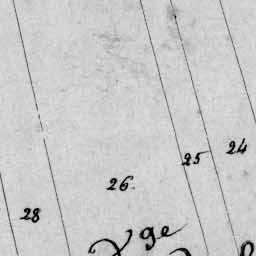 24
25
26.
28
ge